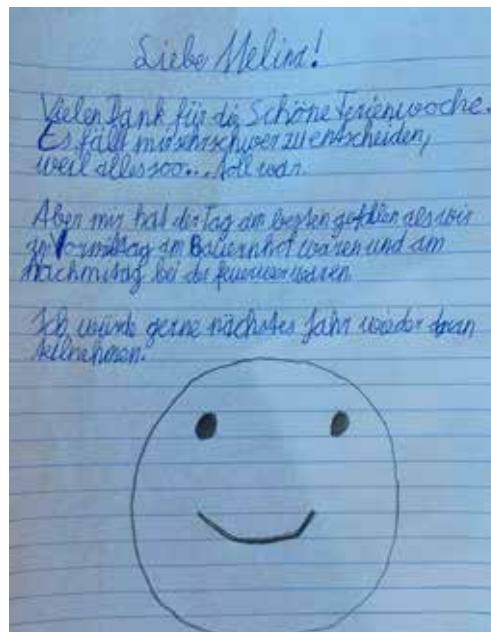 Liebe Melina!
Vielen Dank für die Schöne Ferienwoche.
Es fällt mir sehr schwer zu entscheiden,
weil alles soo... toll war.
Aber mir hat der Tag am besten gefallen als wir
am Vormittag am Bauernhof waren und am
nachmitag bei der feuerwer waren
Ich würde gerne nächstes Jahr wieder daran
teilnehmen.